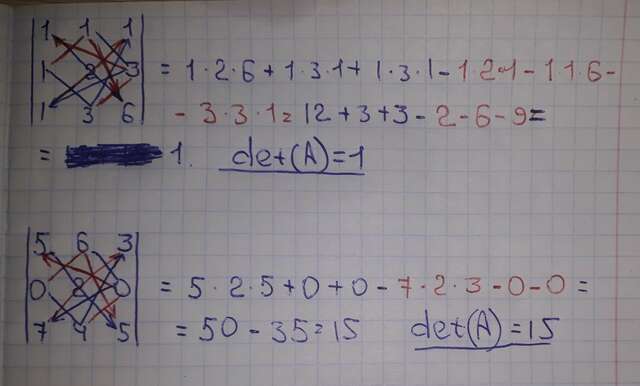 |1 1 1|
|1 2 3| = 1·2·6 + 1·3·1 + 1·3·1 - 1·2·1 - 1·1·6 -
|1 3 6| - 3·3·1 = 12 + 3 + 3 - 2 - 6 - 9 =
= 1. det(A) = 1
|5 6 3|
|0 2 0| = 5·2·5 + 0 + 0 - 7·2·3 - 0 - 0 =
|7 4 5| = 50 - 35 = 15 det(A) = 15